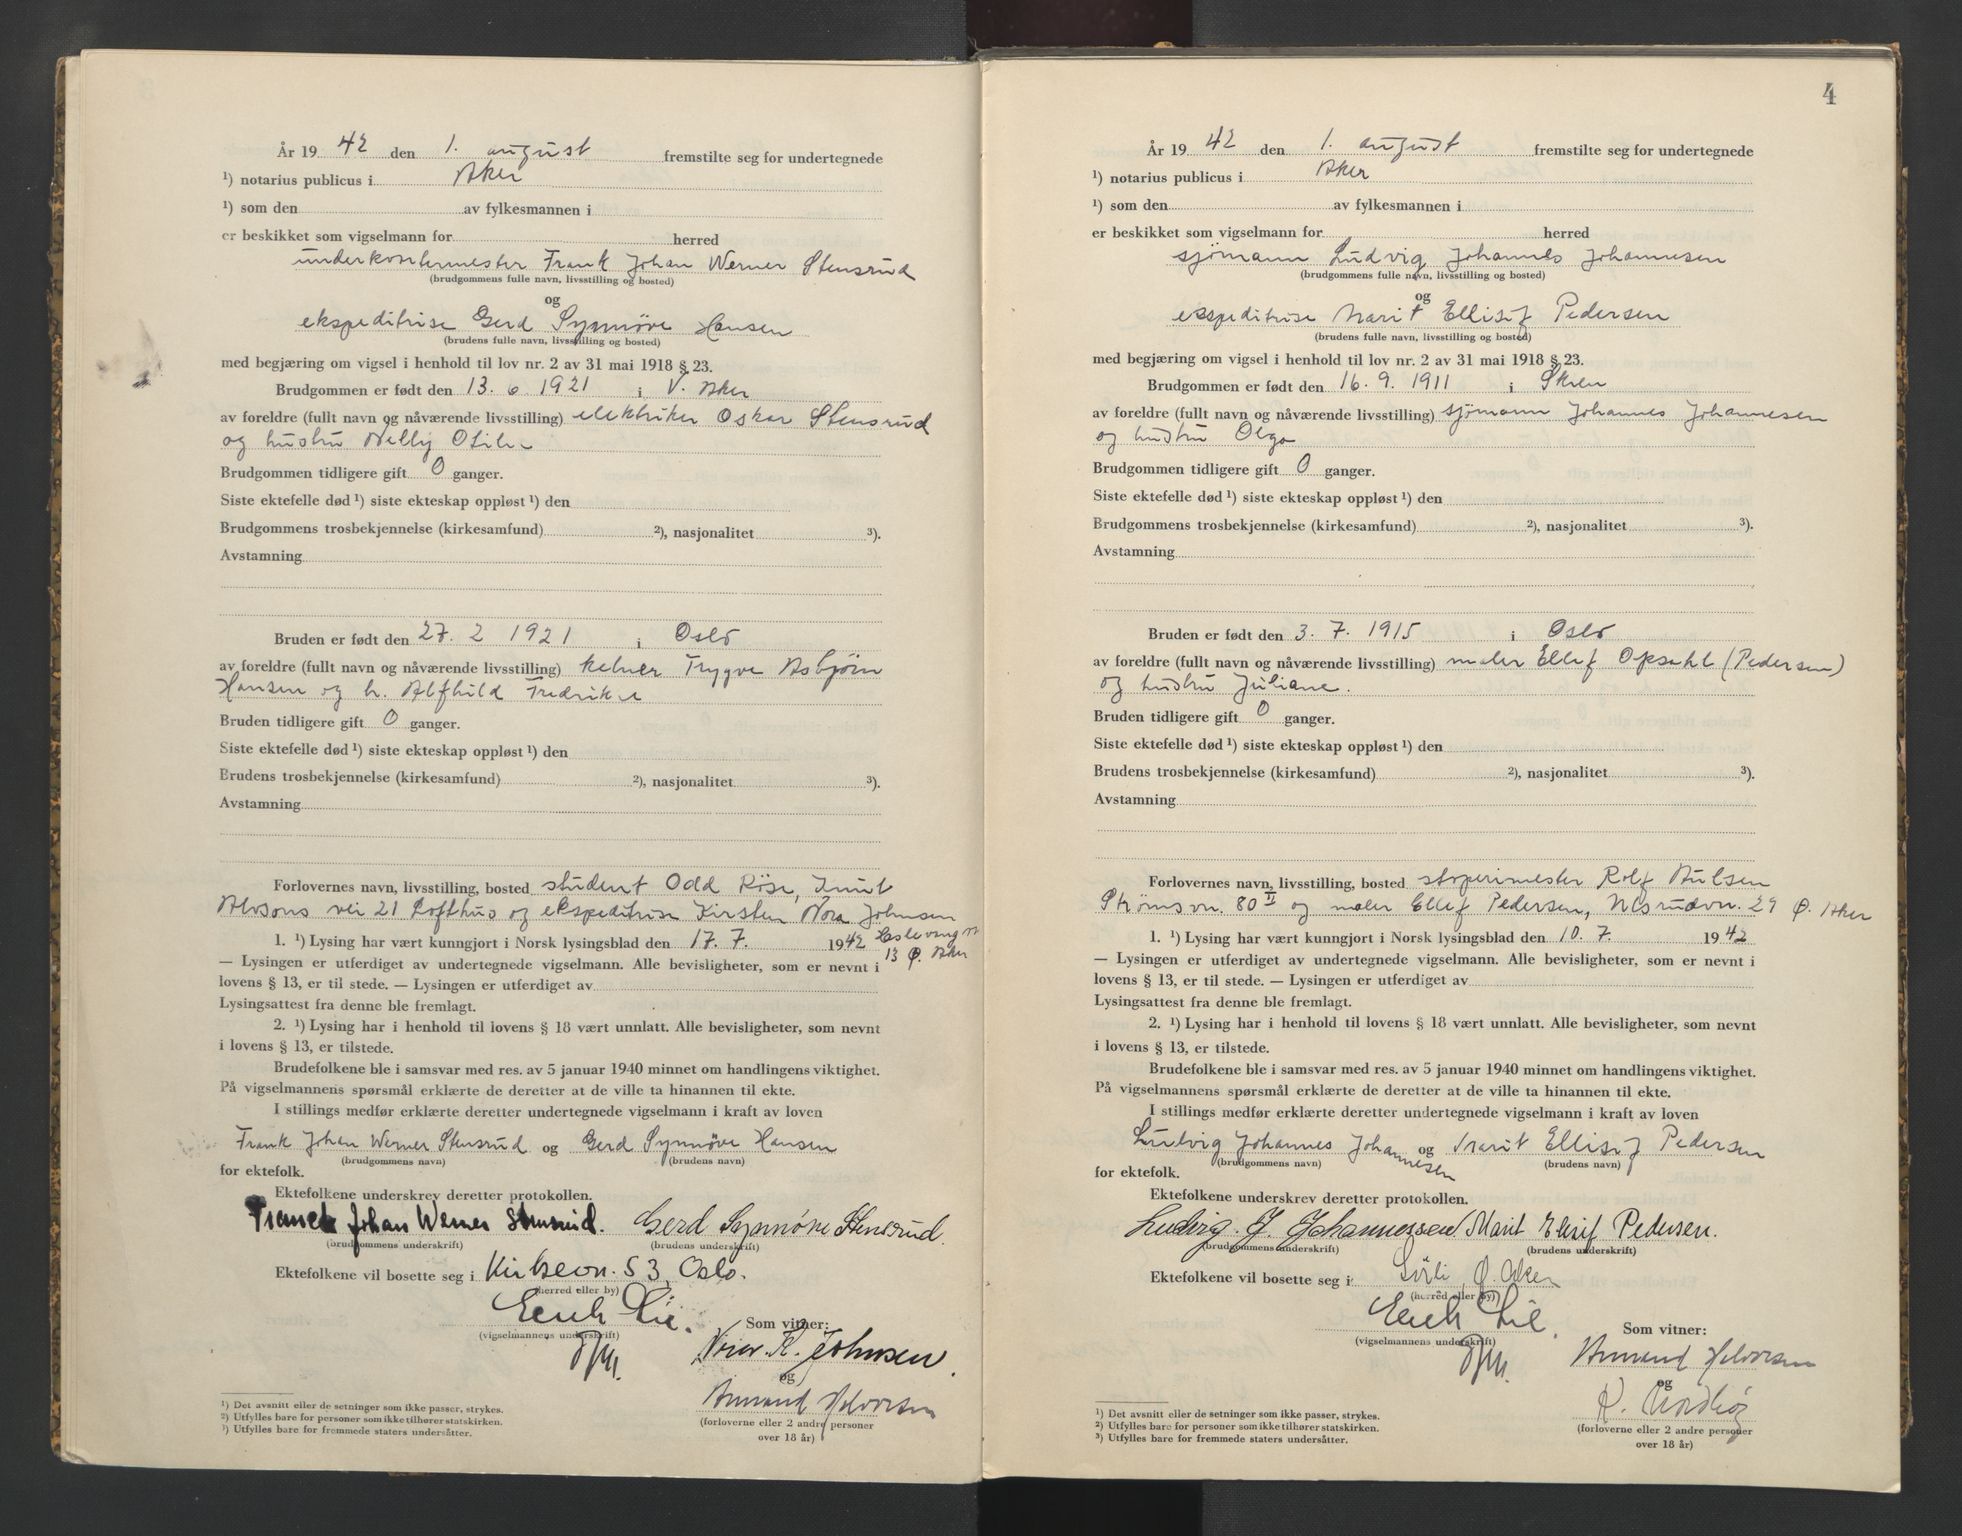 År 19 42 den 1. august fremstilte seg for undertegnede
¹) notarius publicus i Aker
¹) som den av fylkesmannen i
er beskikket som vigselmann for herred
Frank Johan Werner Stensrud
(brudgommens fulle navn, livsstilling og bosted)
og
ekspeditrise Gerd Synnöve Hansen
(brudens fulle navn, livsstilling og bosted)
med begjæring om vigsel i henhold til lov nr. 2 av 31 mai 1918 § 23.
Brudgommen er født den 13. 6 1921 i V. Aker
av foreldre (fullt navn og nåværende livsstilling) elektriker Oskar Stensrud
og hustru Nelly Otilie
Brudgommen tidligere gift 0 ganger.
Siste ektefelle død ¹) siste ekteskap oppløst ¹) den
Brudgommens trosbekjennelse (kirkesamfund) ²), nasjonalitet ³).
Avstamning
Bruden er født den 27. 2 1921 i Oslo
av foreldre (fullt navn og nåværende livsstilling) kelner Trygve Asbjörn
Hansen og h. Alfhild Fredrikke
Bruden tidligere gift 0 ganger.
Siste ektefelle død ¹) siste ekteskap oppløst ¹) den
Brudens trosbekjennelse (kirkesamfund) ²), nasjonalitet ³).
Avstamning
Forlovernes navn, livsstilling, bosted student Odd Röse, Knut
Alvsons vei 21 Lofthus og ekspeditrise Kirsten Nora Johnsen
1. ¹) Lysing har vært kunngjort i Norsk lysingsblad den 17. 7. 1942
13 Ø. Aker
— Lysingen er utferdiget av undertegnede vigselmann. Alle bevisligheter, som er nevnt i
lovens § 13, er til stede. — Lysingen er utferdiget av
Lysingsattest fra denne ble fremlagt.
2. ¹) Lysing har i henhold til lovens § 18 vært unnlatt. Alle bevisligheter, som nevnt
i lovens § 13, er tilstede.
Brudefolkene ble i samsvar med res. av 5 januar 1940 minnet om handlingens viktighet.
På vigselmannens spørsmål erklærte de deretter at de ville ta hinannen til ekte.
I stillings medfør erklærte deretter undertegnede vigselmann i kraft av loven
Frank Johan Werner Stensrud og Gerd Synnöve Hansen
(brudgommens navn) (brudens navn)
for ektefolk.
Ektefolkene underskrev deretter protokollen.
Franck Johan Werner Stensrud. Gerd Synnöve Stensrud.
(brudgommens underskrift) (brudens underskrift)
Ektefolkene vil bosette seg i 53, Oslo.
(herred eller by)
Erich Lie.
(vigselmannens underskrift)
Som vitner:
Johnsen.
og
Armand Halvorsen
(forloverne eller 2 andre personer
over 18 år)
¹) Det avsnitt eller de setninger som ikke passer, strykes.
²) Utfylles bare for personer som ikke tilhører statskirken.
³) Utfylles bare for fremmede staters undersåtter.
4
År 19 42 den 1. august fremstilte seg for undertegnede
¹) notarius publicus i Aker
¹) som den av fylkesmannen i
er beskikket som vigselmann for herred
sjömann Ludvig Johannes Johannesen
(brudgommens fulle navn, livsstilling og bosted)
og
ekspeditrise Marit Ellisif Pedersen
(brudens fulle navn, livsstilling og bosted)
med begjæring om vigsel i henhold til lov nr. 2 av 31 mai 1918 § 23.
Brudgommen er født den 16. 9. 1911 i Skien
av foreldre (fullt navn og nåværende livsstilling) sjömann Johannes Johannesen
og hustru Olga
Brudgommen tidligere gift 0 ganger.
Siste ektefelle død ¹) siste ekteskap oppløst ¹) den
Brudgommens trosbekjennelse (kirkesamfund) ²), nasjonalitet ³).
Avstamning
Bruden er født den 3. 7. 1915 i Oslo
av foreldre (fullt navn og nåværende livsstilling) maler Ellef Opsahl (Pedersen)
og hustru Juliane.
Bruden tidligere gift 0 ganger.
Siste ektefelle død ¹) siste ekteskap oppløst ¹) den
Brudens trosbekjennelse (kirkesamfund) ²), nasjonalitet ³).
Avstamning
Forlovernes navn, livsstilling, bosted stoperimester Rolf
Strömsvn. 80 II og maler Ellef Pedersen, 29 Ø. Aker
1. ¹) Lysing har vært kunngjort i Norsk lysingsblad den 10. 7 1942
— Lysingen er utferdiget av undertegnede vigselmann. Alle bevisligheter, som er nevnt i
lovens § 13, er til stede. — Lysingen er utferdiget av
Lysingsattest fra denne ble fremlagt.
2. ¹) Lysing har i henhold til lovens § 18 vært unnlatt. Alle bevisligheter, som nevnt
i lovens § 13, er tilstede.
Brudefolkene ble i samsvar med res. av 5 januar 1940 minnet om handlingens viktighet.
På vigselmannens spørsmål erklærte de deretter at de ville ta hinannen til ekte.
I stillings medfør erklærte deretter undertegnede vigselmann i kraft av loven
Ludvig Johannes Johannesen og Marit Ellisif Pedersen
(brudgommens navn) (brudens navn)
for ektefolk.
Ektefolkene underskrev deretter protokollen.
Ludvig. J. Johannessen Marit Elisif Pedersen.
(brudgommens underskrift) (brudens underskrift)
Ektefolkene vil bosette seg i Ø. Aker
(herred eller by)
Erich Lie.
(vigselmannens underskrift)
Som vitner:
Armand Halvorsen
og
(forloverne eller 2 andre personer
over 18 år)
¹) Det avsnitt eller de setninger som ikke passer, strykes.
²) Utfylles bare for personer som ikke tilhører statskirken.
³) Utfylles bare for fremmede staters undersåtter.